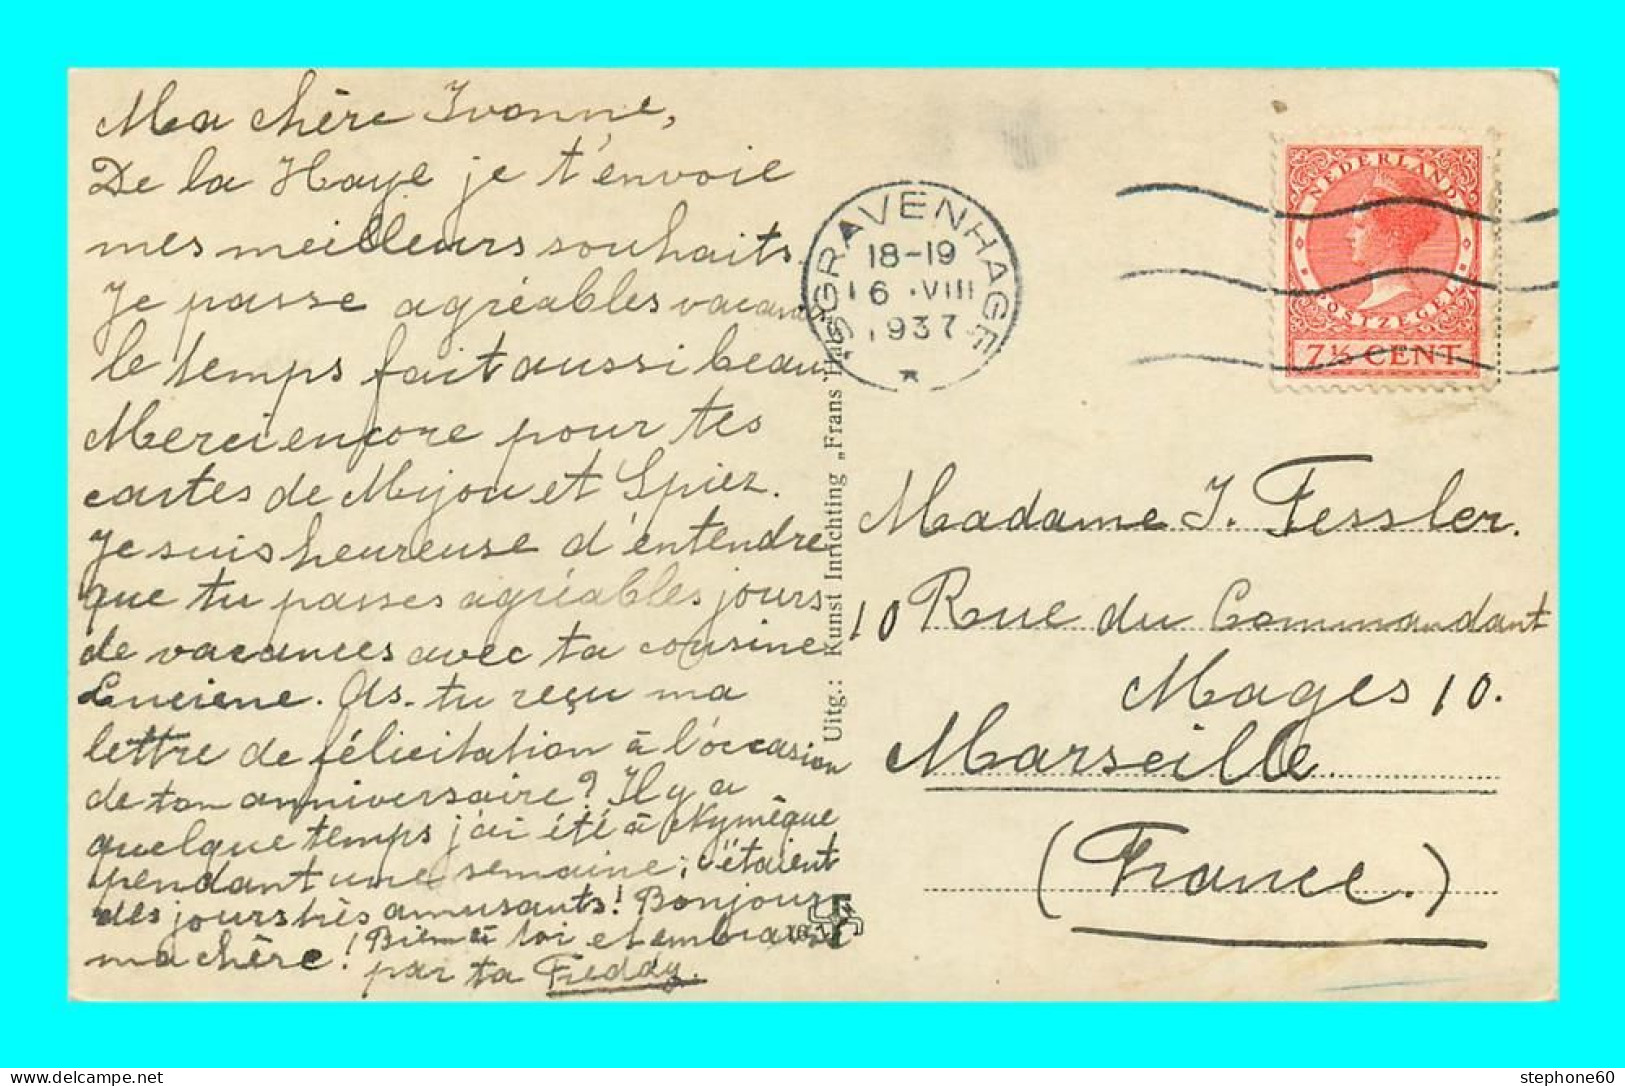 Ma chère Ivonne,
De la Haye je t'envoie
mes meilleurs souhaits.
Je passe agréables vacances
le temps fait aussi beau.
Merci encore pour tes
cartes de Mijou et Spiez.
Je suis heureuse d'entendre
que tu passes agréables jours
de vacances avec ta cousine
Luciene. As-tu reçu ma
lettre de félicitation à l'occasion
de ton anniversaire? Il y a
quelque temps j'ai été à Nymègue
pendant une semaine; c'étaient
des jours très amusants! Bonjour
ma chère! toi et embrasse
par ta Freddy.
Uitg.: Kunst Inrichting „Frans Hals"
'S GRAVENHAGE
18-19
16 .VIII
1937
NEDERLAND
POSTZEGEL
7½ CENT
Madame J. Fessler.
10 Rue du Commandant
Mages 10.
Marseille.
(France.)
stephone60